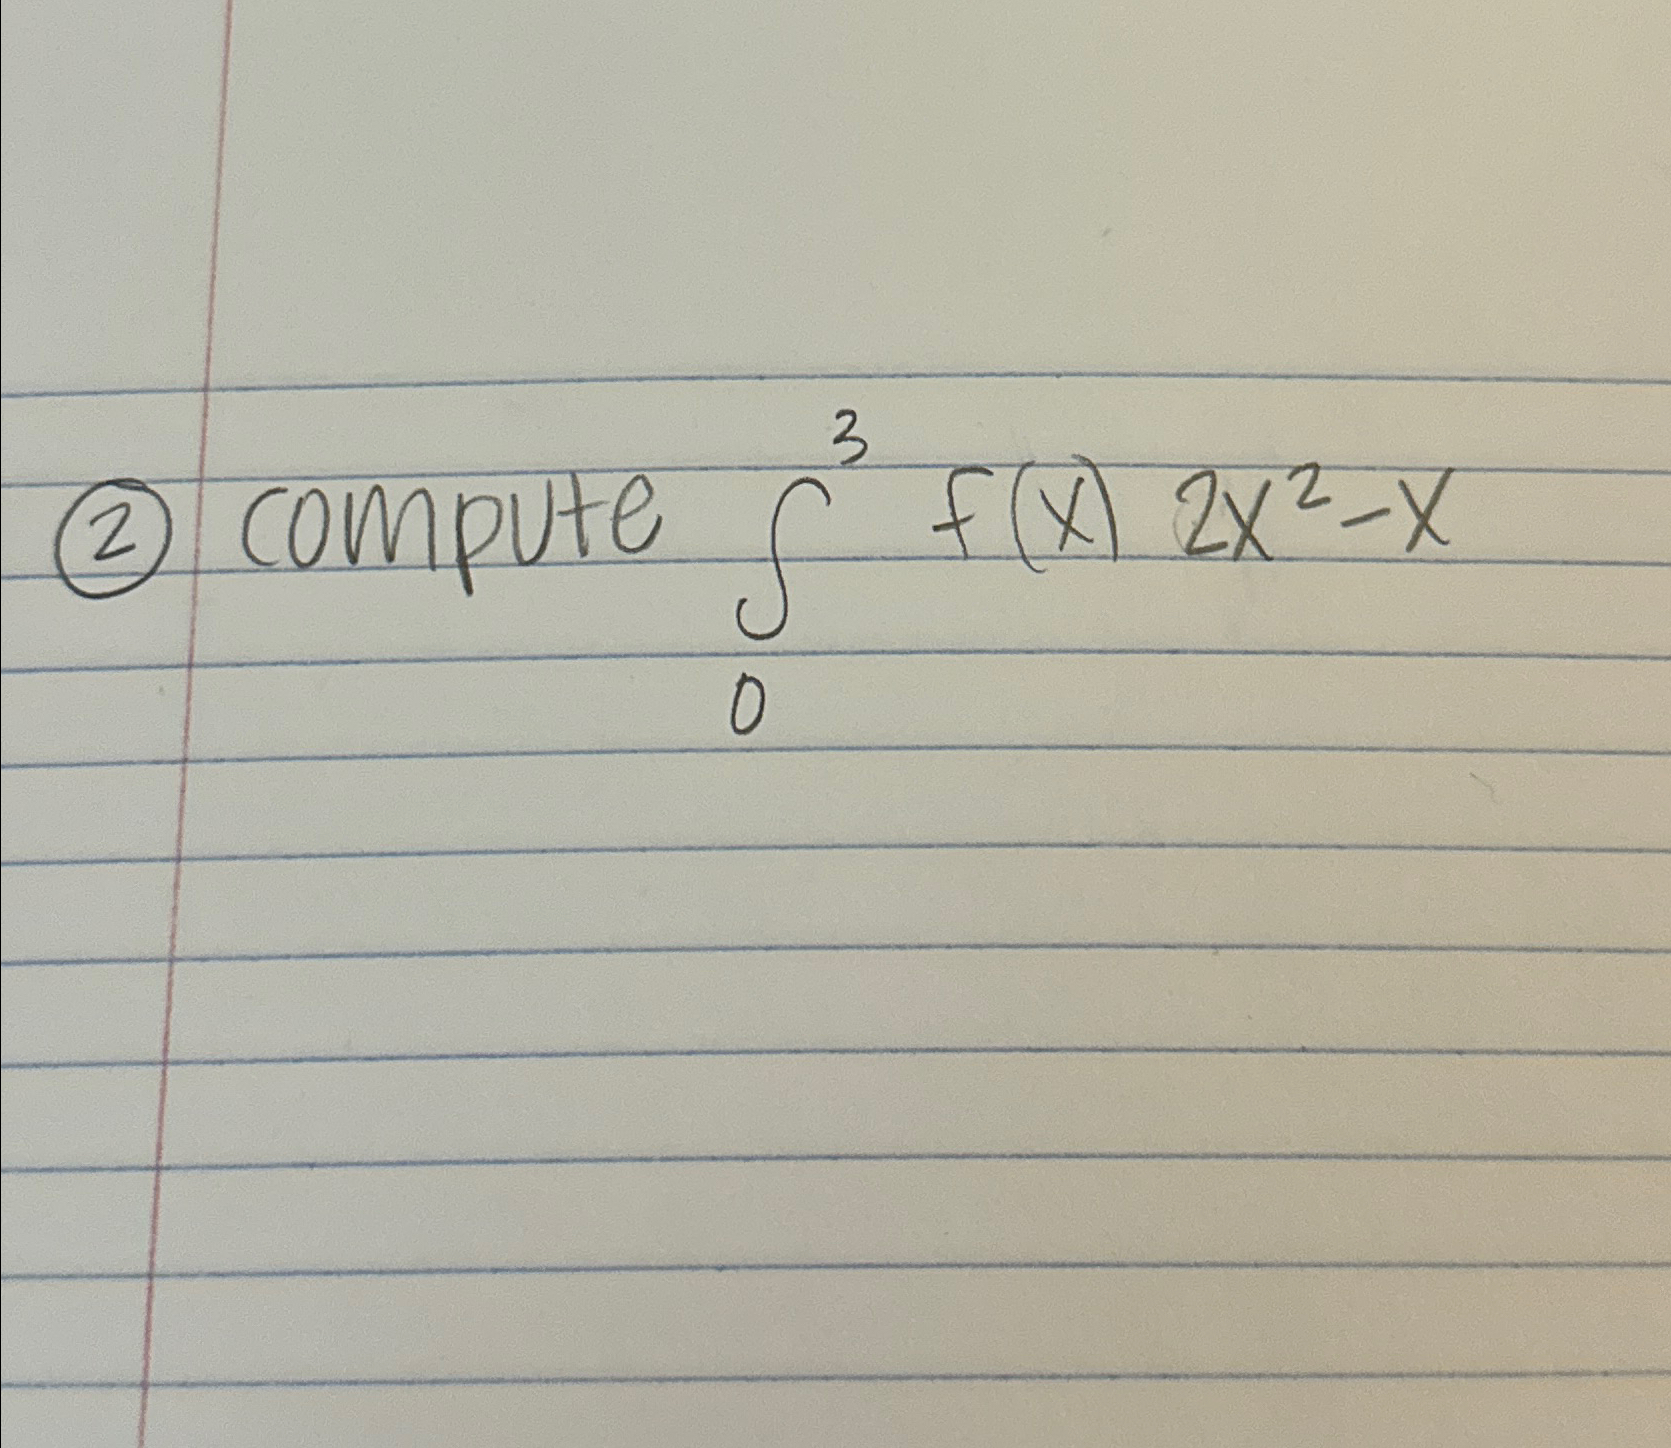 ② compute ∫₀³ f(x) 2x² - x